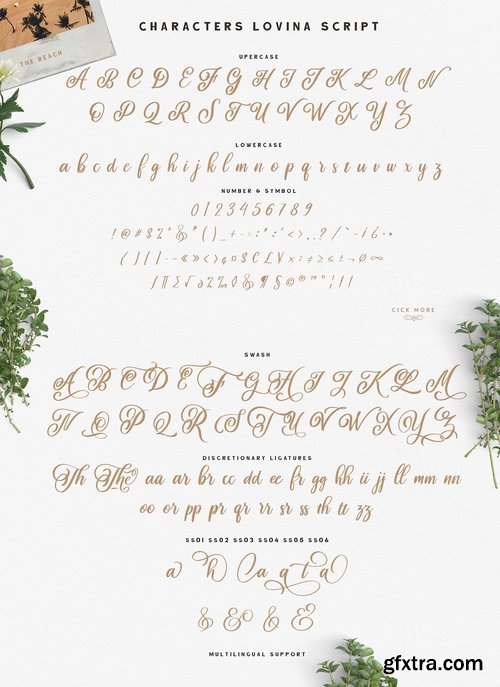 THE BEACH
CHARACTERS LOVINA SCRIPT
UPERCASE
A B C D E F G H I J K L M N
O P Q R S T U V W X Y Z
LOWERCASE
a b c d e f g h i j k l m n o p q r s t u v w x y z
NUMBER & SYMBOL
0 1 2 3 4 5 6 7 8 9
CICK MORE
SWASH
A B C D E F G H I J K L M
N O P Q R S T U V W X Y Z
DISCRETIONARY LIGATURES
Th The aa ar br cc dd ee fr gg hh ii jj ll mm nn
oo or pp pr qr rr sr ss th tt zz
SS01 SS02 SS03 SS04 SS05 SS06
& & & &
MULTILINGUAL SUPPORT
gfxtra.com